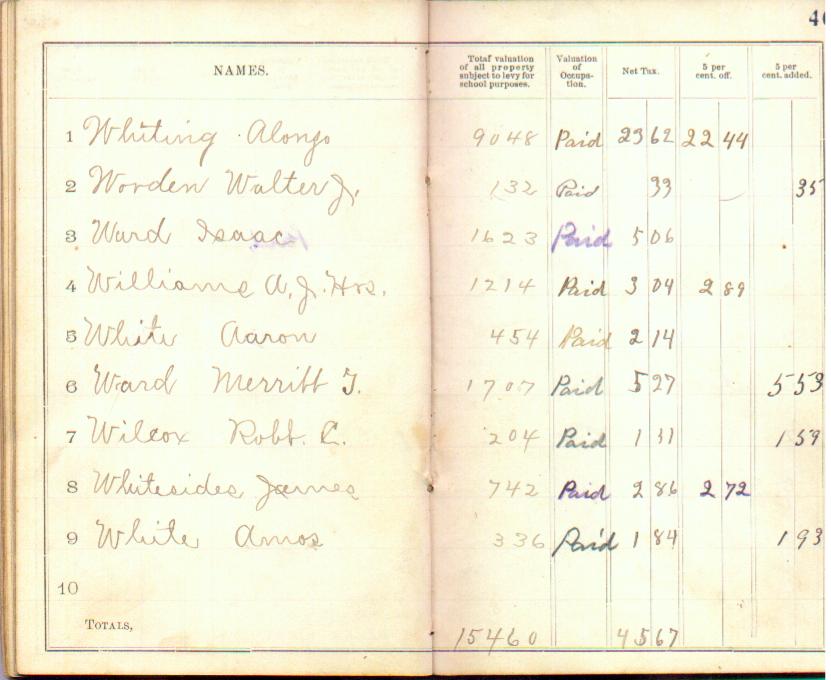 4
NAMES.
Total valuation of all property subject to levy for school purposes.
Valuation of Occupation.
Net Tax.
5 per cent. off.
5 per cent. added.
1 Whiting Alonzo 9048 Paid 23 62 22 44
2 Worden Walter J. 132 Paid 33 35
3 Ward Isaac 1623 Paid 5 06
4 Williams A. J. Hrs. 1214 Paid 3 04 2 89
5 White Aaron 454 Paid 2 14
6 Ward Merritt T. 1707 Paid 5 27 5 53
7 Wilcox Robt. C. 204 Paid 1 51 1 59
8 Whitesides James 742 Paid 2 86 2 72
9 White Amos 336 Paid 1 84 1 93
10
TOTALS, 15460 45 67